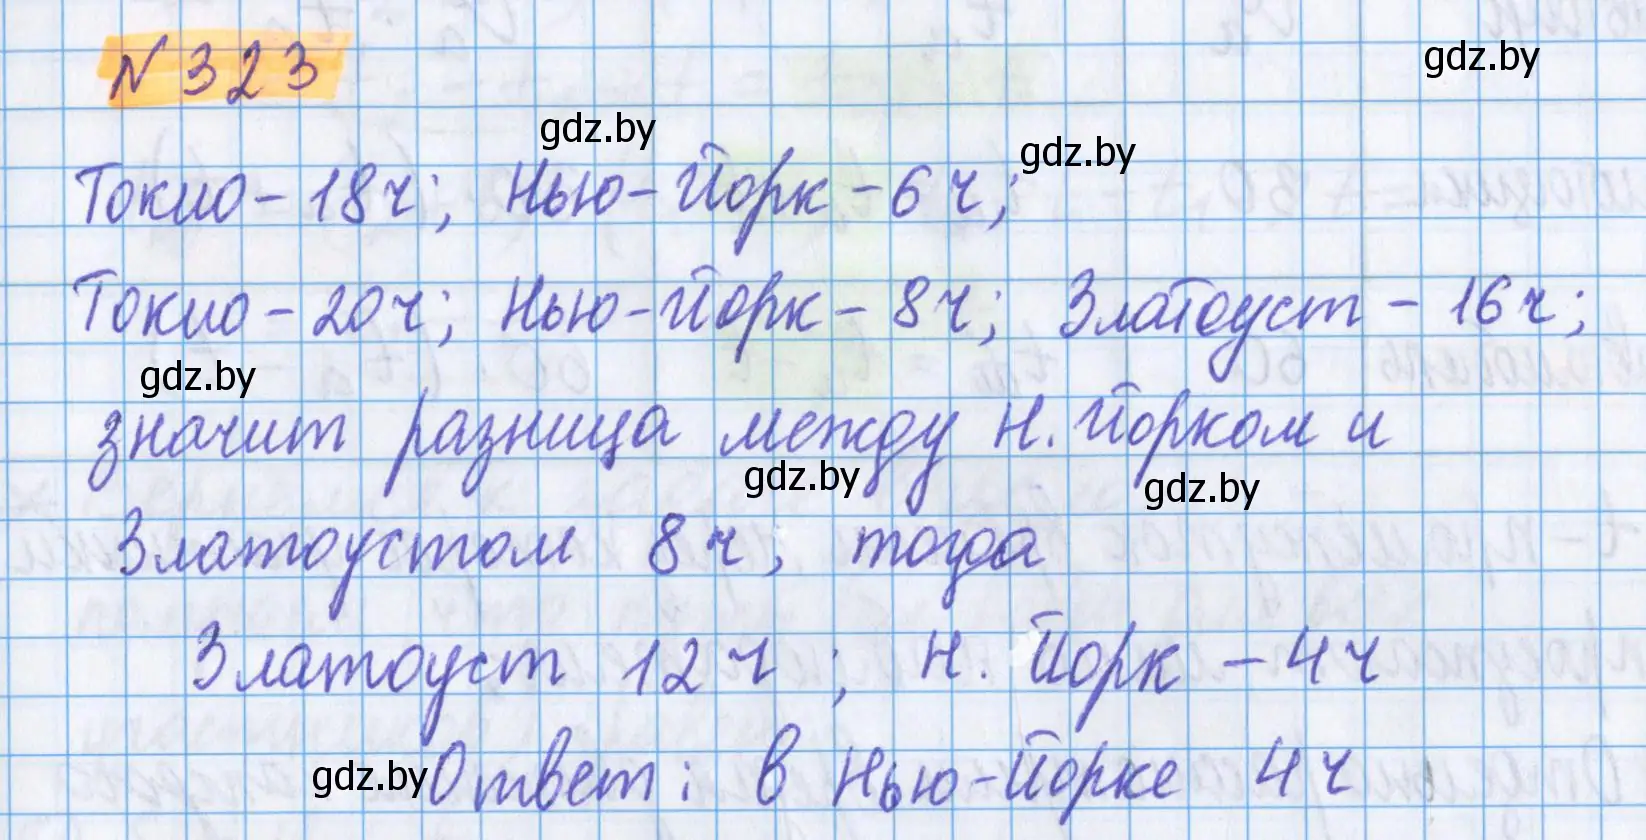 N 323
gdz.by
gdz.by
gdz.by
Токио - 18ч; Нью-Йорк - 6 ч;
Токио - 20ч; Нью-Йорк - 8ч; Златоуст - 16ч;
gdz.by
значит разница между Н. Йорком и
gdz.by
gdz.by
Златоустом 8ч, тогда
Златоуст 12ч; Н. Йорк - 4ч
gdz.by
Ответ: в Нью-Йорке 4ч